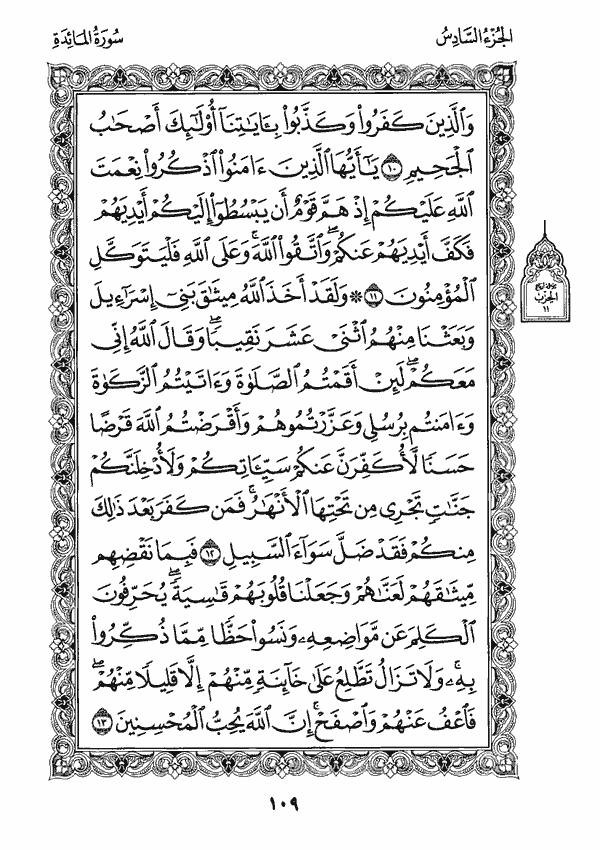 الجُزْءُ السَّادِسُ
سُورَةُ المَائِدَةِ
وَٱلَّذِينَ كَفَرُوا۟ وَكَذَّبُوا۟ بِـَٔايَـٰتِنَآ أُو۟لَـٰٓئِكَ أَصْحَـٰبُ
ٱلْجَحِيمِ ١٠ يَـٰٓأَيُّهَا ٱلَّذِينَ ءَامَنُوا۟ ٱذْكُرُوا۟ نِعْمَتَ
ٱللَّهِ عَلَيْكُمْ إِذْ هَمَّ قَوْمٌ أَن يَبْسُطُوٓا۟ إِلَيْكُمْ أَيْدِيَهُمْ
فَكَفَّ أَيْدِيَهُمْ عَنكُمْ ۖ وَٱتَّقُوا۟ ٱللَّهَ ۚ وَعَلَى ٱللَّهِ فَلْيَتَوَكَّلِ
ٱلْمُؤْمِنُونَ ١١ ۞ وَلَقَدْ أَخَذَ ٱللَّهُ مِيثَـٰقَ بَنِىٓ إِسْرَٰٓءِيلَ
وَبَعَثْنَا مِنْهُمُ ٱثْنَىْ عَشَرَ نَقِيبًا ۖ وَقَالَ ٱللَّهُ إِنِّى
مَعَكُمْ ۖ لَئِنْ أَقَمْتُمُ ٱلصَّلَوٰةَ وَءَاتَيْتُمُ ٱلزَّكَوٰةَ
وَءَامَنتُم بِرُسُلِى وَعَزَّرْتُمُوهُمْ وَأَقْرَضْتُمُ ٱللَّهَ قَرْضًا
حَسَنًا لَّأُكَفِّرَنَّ عَنكُمْ سَيِّـَٔاتِكُمْ وَلَأُدْخِلَنَّكُمْ
جَنَّـٰتٍ تَجْرِى مِن تَحْتِهَا ٱلْأَنْهَـٰرُ ۚ فَمَن كَفَرَ بَعْدَ ذَٰلِكَ
مِنكُمْ فَقَدْ ضَلَّ سَوَآءَ ٱلسَّبِيلِ ١٢ فَبِمَا نَقْضِهِم
مِّيثَـٰقَهُمْ لَعَنَّـٰهُمْ وَجَعَلْنَا قُلُوبَهُمْ قَـٰسِيَةً ۖ يُحَرِّفُونَ
ٱلْكَلِمَ عَن مَّوَاضِعِهِۦ ۙ وَنَسُوا۟ حَظًّا مِّمَّا ذُكِّرُوا۟
بِهِۦ ۚ وَلَا تَزَالُ تَطَّلِعُ عَلَىٰ خَآئِنَةٍ مِّنْهُمْ إِلَّا قَلِيلًا مِّنْهُمْ ۖ
فَٱعْفُ عَنْهُمْ وَٱصْفَحْ ۚ إِنَّ ٱللَّهَ يُحِبُّ ٱلْمُحْسِنِينَ ١٣
الحِزْب
١١
١٠٩